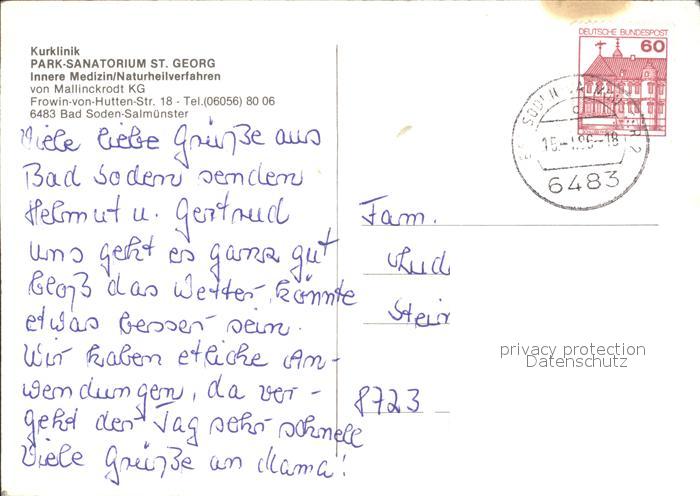 Kurklinik
PARK-SANATORIUM ST. GEORG
Innere Medizin/Naturheilverfahren
von Mallinckrodt KG
Frowin-von-Hutten-Str. 18 - Tel.(06056) 80 06
6483 Bad Soden-Salmünster
Viele liebe Grüße aus
Bad Soden senden
Helmut u. Gertrud
Uns geht es ganz gut
bloß das Wetter könnte
etwas besser sein.
Wir haben etliche An-
wendungen, da ver-
geht der Tag sehr schnell
Viele Grüße an Mama!
DEUTSCHE BUNDESPOST
60
6483
Fam.
Lud
Stein
8723
privacy protection
Datenschutz